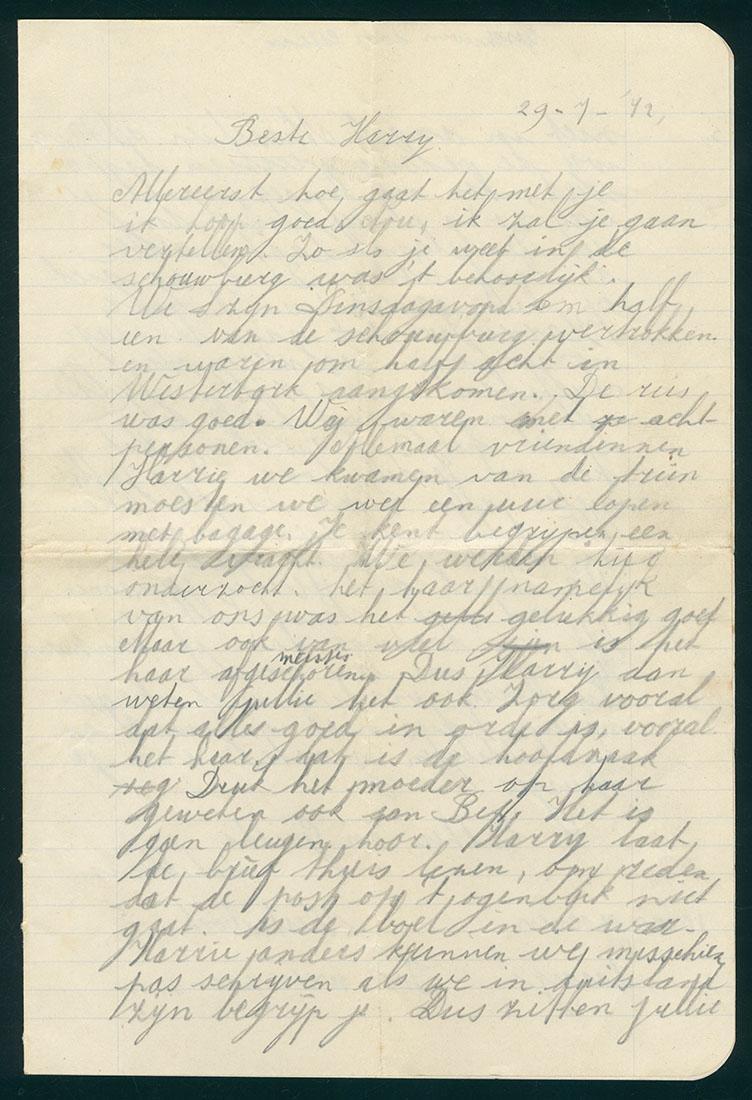 29-7-'42,
Beste Harry.
Allereerst hoe gaat het met je
ik hoop goed. Nou, ik zal je gaan
vertellen. Zo als je weet in de
schouwburg was 't behoorlijk.
We zijn Dinsdagavond om half
een van de schouwburg vertrokken
en waren om half acht in
Westerbork aangekomen. De reis
was goed. Wij waren met acht
personen. Allemaal vriendinnen
Harrie we kwamen van de trein
moesten we wel een uur lopen
met bagage. Je kent begrijpen, een
hele dracht. We, werden hier
onderzocht. het haar namelijk
van ons was het gelukkig goed
Maar ook van veel is het
meisjes
haar afgeschoren. Dus Harry dan
weten jullie het ook. Zorg vooral
dat alles goed in orde is, vooral
het haar, dat is de hoofdzaak
Druk het moeder op haar
geweten ook aan Bep. Het is
geen leugen hoor. Harry laat
de brief thuis lezen, om reden
dat de post op 't ogenblik niet
gaat. Is de boel in de war.
Harrie anders kunnen we misschien
pas schrijven als we in Duitsland
zijn begrijp je. Dus zitten jullie